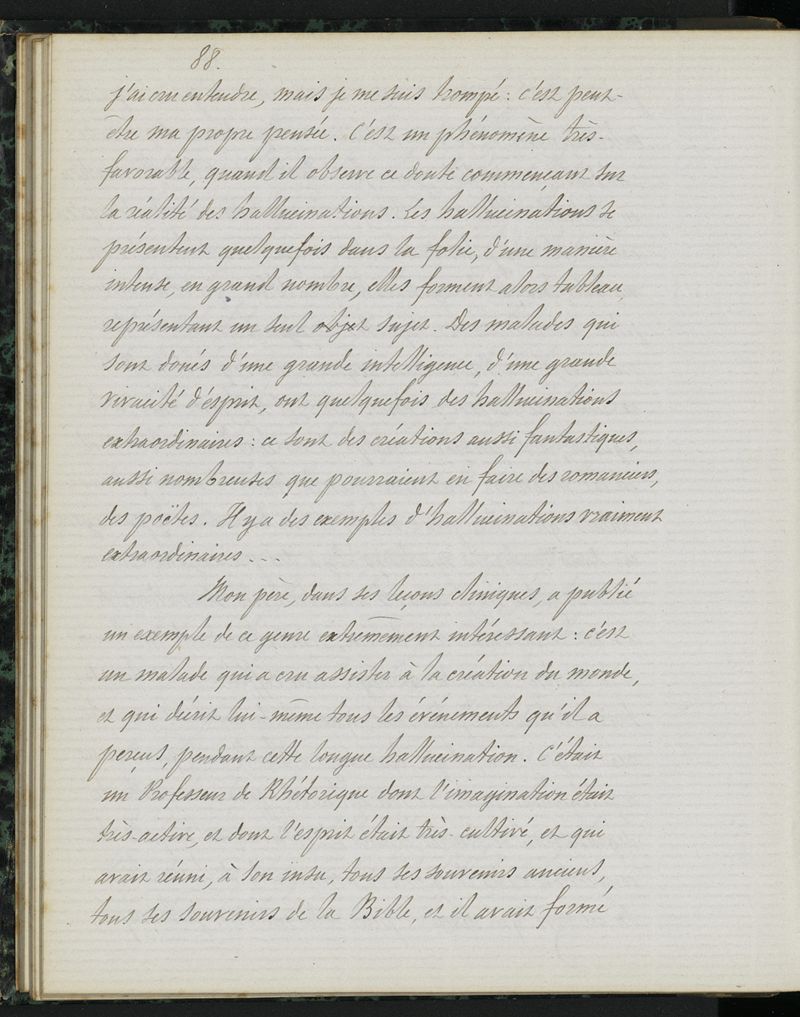 88.
j'ai cru entendre, mais je me suis trompé : c'est peut-
être ma propre pensée. C'est un phénomène très-
favorable, quand il observe ce doute commençant sur
la réalité des hallucinations. Les hallucinations se
présentent quelquefois dans la folie, d'une manière
intense, en grand nombre, elles forment alors tableau,
représentant un seul objet sujet. Des malades qui
sont doués d'une grande intelligence, d'une grande
vivacité d'esprit, ont quelquefois des hallucinations
extraordinaires : ce sont des créations aussi fantastiques,
aussi nombreuses que pourraient en faire des romanciers,
des poëtes. Il y a des exemples d'hallucinations vraiment
extraordinaires...
Mon père, dans ses leçons cliniques, a publié
un exemple de ce genre extrêmement intéressant : c'est
un malade qui a cru assister à la création du monde,
et qui décrit lui-même tous les événements qu'il a
perçus, pendant cette longue hallucination. C'était
un Professeur de Rhétorique dont l'imagination était
très-active, et dont l'esprit était très-cultivé, et qui
avait réuni, à son insu, tous ses souvenirs anciens,
tous ses souvenirs de la Bible, et il avait formé